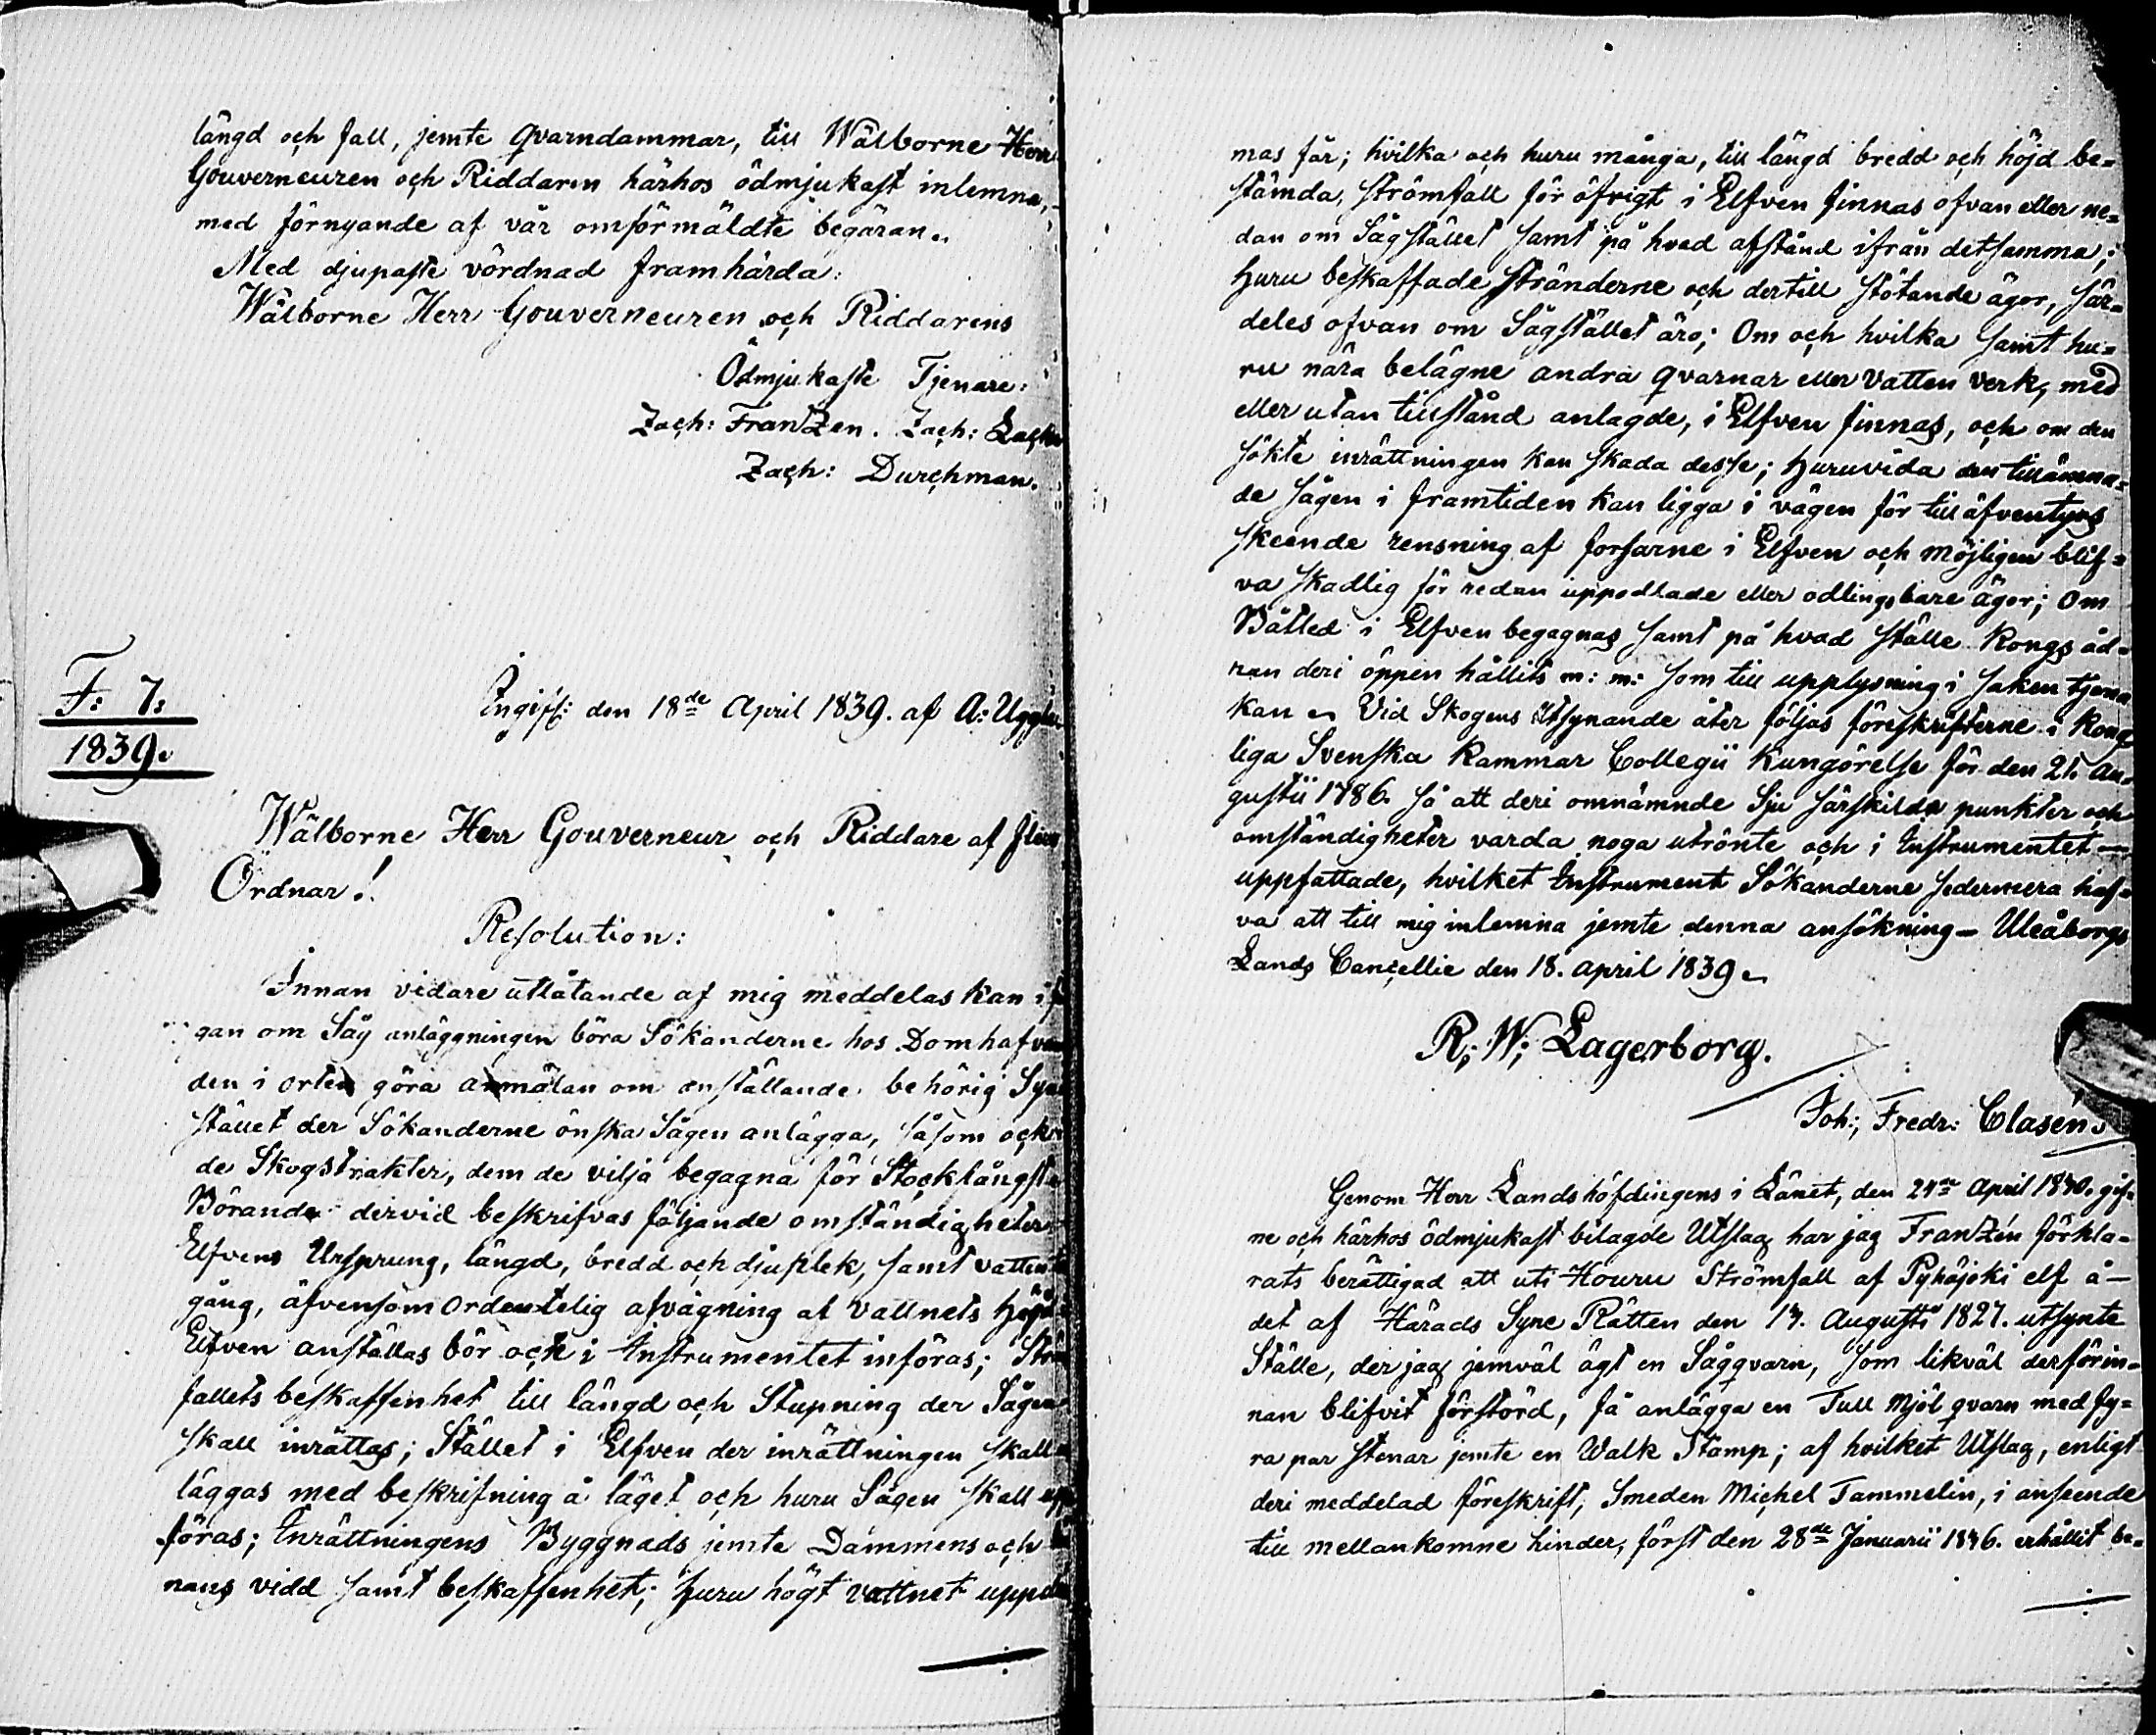 längd och fall, jemte qvarndammar, till Wälborne Herr
Gouverneuren och Riddaren härhos ödmjukast inlemna,
med förnyande af vår omförmäldte begäran.
Med djupaste vördnad framhärda:
Wälborne Herr Gouverneuren och Riddarens
Ödmjukaste Tjenare:
Zach: FranZen. Zach:
Zach: Durchman.
F: 7:
1839.
Ingifv: den 18de April 1839. af A: Uggla
Wälborne Herr Gouverneur och Riddare af flera
Ordnar!
Resolution:
Innan vidare utlåtande af mig meddelas kan i
gan om Såg anläggningen böra Sökanderne hos Domhafvan
den i orten göra anmälan om anställande behörig Syn
stället der Sökanderne önska Sågen anlägga, såsom ock
de Skogstrakter, dem de vilja begagna för Stockfångst
Börande dervid beskrifvas följande omständigheter
Elfvens Ursprung, längd, bredd och djuplek, samt vatten
gång, äfvensom ordentelig afvägning af vattnets höjd
Elfven anställas bör och i Instrumentet införas; Ström
fallets beskaffenhet till längd och Stupning der Sågen
skall inrättas; Stället i Elfven der inrättningen skall
läggas med beskrifning å läget och huru Sågen skall upp
föras; Inrättningens Byggnads jemte Dammens och
nans vidd samt beskaffenhet; huru högt vattnet uppdäm
mas får; hvilka och huru många, till längd bredd och höjd be=
stämda, strömfall för öfrigt i Elfven finnas ofvan eller ne=
dan om Sågstället samt på hvad afstånd ifrån detsamma;
huru beskaffade stränderne och dertill stötande ägor, sär=
deles ofvan om Sågstället äro; Om och hvilka samt hu=
ru nära belägne andra qvarnar eller Vatten verk, med
eller utan tillstånd anlagde, i Elfven finnas, och om den
sökte inrättningen kan skada desse; huruvida den tillämna=
de Sågen i framtiden kan ligga i vägen för till äfventyrs
skeende rensning af forsarne i Elfven och möjligen blif=
va skadlig för redan uppodlade eller odlingsbare ägor; Om
Båtled i Elfven begagnas samt på hvad ställe Kongs åd=
ran deri öppen hållits m: m: som till upplysning i saken tjena
kan. Vid Skogens utsynande åter följas föreskrifterne i Kong
liga Svenska Kammar Collegii Kungörelse för den 21. Au=
gustii 1786. så att deri omnämnde Sju särskilda punkter och
omständigheter varda noga utrönte och i Instrumentet
uppfattade, hvilket Instrument Sökanderne sedermera haf=
va att till mig inlemna jemte denna ansökning – Uleåborgs
Lands Cancellie den 18. April 1839.
R: W: Lagerborg.
Joh: Fredr: Clasén.
Genom Herr Landshöfdingens i Länet, den 24de April 1840. gif=
ne och härhos ödmjukast bilagde Utslag har jag FranZén förkla=
rats berättigad att uti Houru Strömfall af Pyhäjoki elf å
det af Härads Syne Rätten den 17. Augusti 1827. utsynte
Ställe, der jag jemväl ägt en Sågqvarn, som likväl derförin=
nan blifvit förstörd, få anlägga en Tull Mjöl qvarn med fy=
ra par stenar jemte en Walk Stamp; af hvilket Utslag, enligt
deri meddelad föreskrift, Smeden Michel Tammelin, i anseende
till mellankomne hinder, först den 28de Januarii 1846. erhållit be=